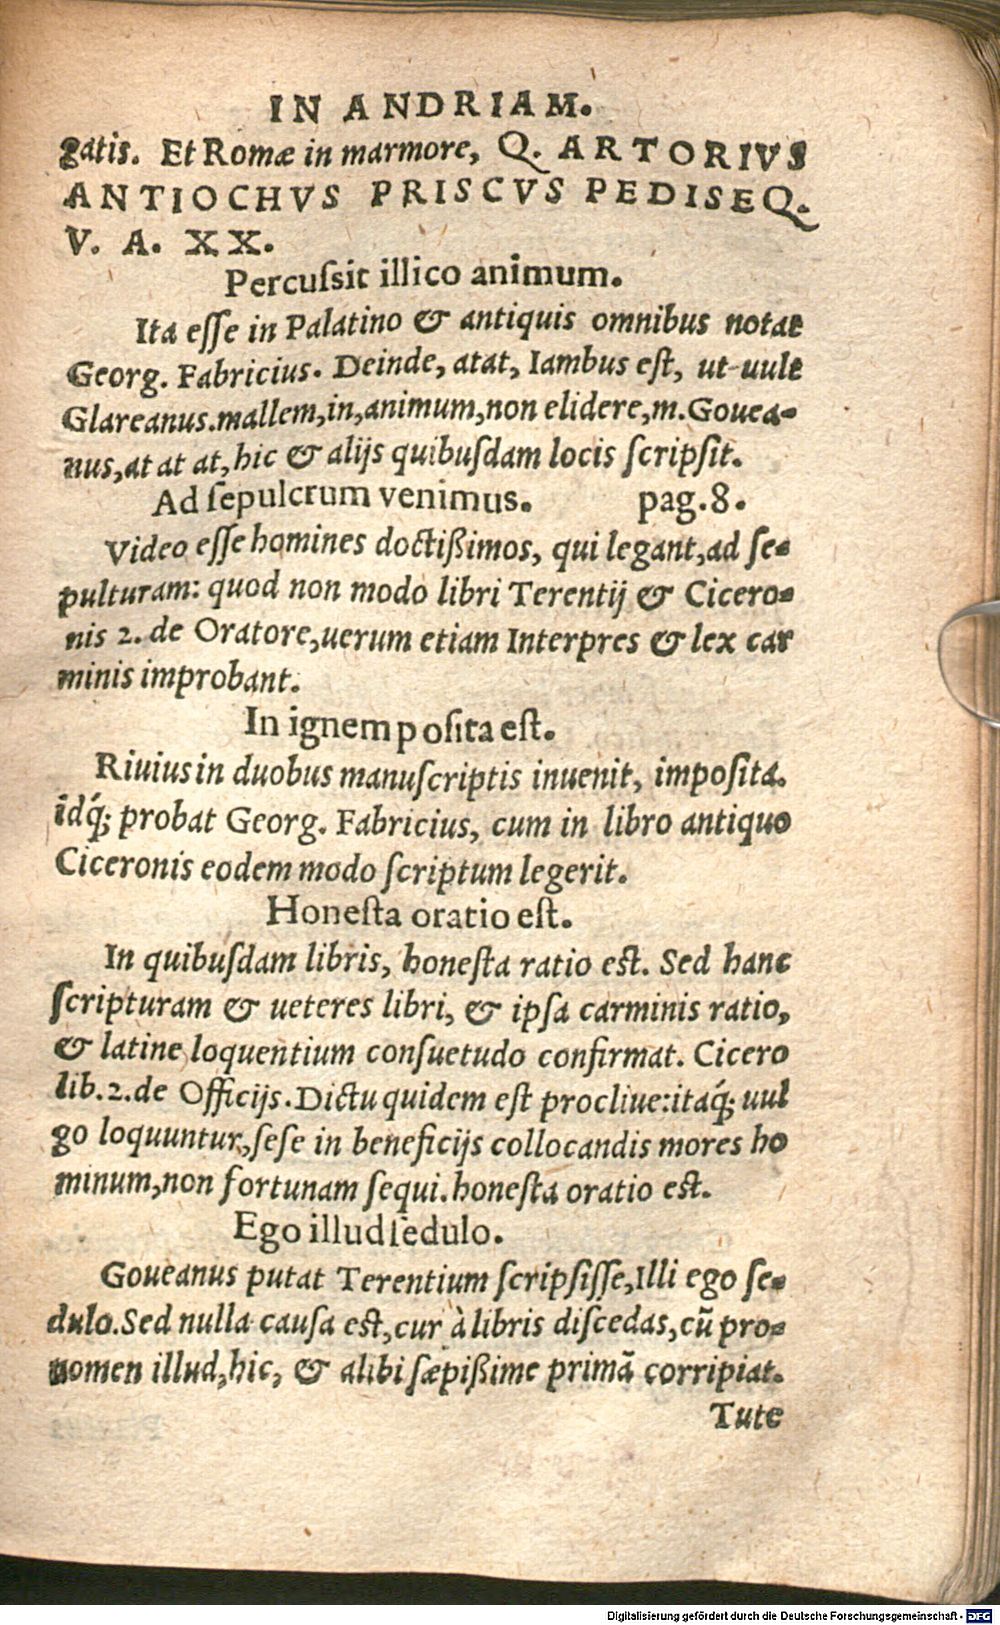 IN ANDRIAM.
gatis. Et Romæ in marmore, Q. ARTORIVS
ANTIOCHVS PRISCVS PEDISEQ.
V. A. XX.
Percuſsit illico animum.
Ita eſſe in Palatino & antiquis omnibus notat
Georg. Fabricius. Deinde, atat, Iambus eſt, ut uult
Glareanus.mallem,in,animum,non elidere,m.Gouea-
nus,at at at,hic & alijs quibuſdam locis ſcripſit.
Ad ſepulcrum venimus. pag.8.
Video eſſe homines doctißimos, qui legant,ad ſe-
pulturam: quod non modo libri Terentij & Cicero-
nis 2. de Oratore,uerum etiam Interpres & lex car
minis improbant.
In ignem poſita eſt.
Riuius in duobus manuſcriptis inuenit, impoſita.
idq́; probat Georg. Fabricius, cum in libro antiquo
Ciceronis eodem modo ſcriptum legerit.
Honeſta oratio eſt.
In quibuſdam libris, honeſta ratio eſt. Sed hanc
ſcripturam & ueteres libri, & ipſa carminis ratio,
& latine loquentium conſuetudo confirmat. Cicero
lib.2.de Officijs.Dictu quidem eſt procliue:itaq́; uul
go loquuntur,ſeſe in beneficijs collocandis mores ho
minum,non fortunam ſequi.honeſta oratio eſt.
Ego illud ſedulo.
Goueanus putat Terentium ſcripſiſſe,Illi ego ſe-
dulo.Sed nulla cauſa eſt,cur à libris diſcedas,cū pro-
nomen illud,hic, & alibi ſæpißime primā corripiat.
Tute
Digitalisierung gefördert durch die Deutsche Forschungsgemeinschaft - DFG